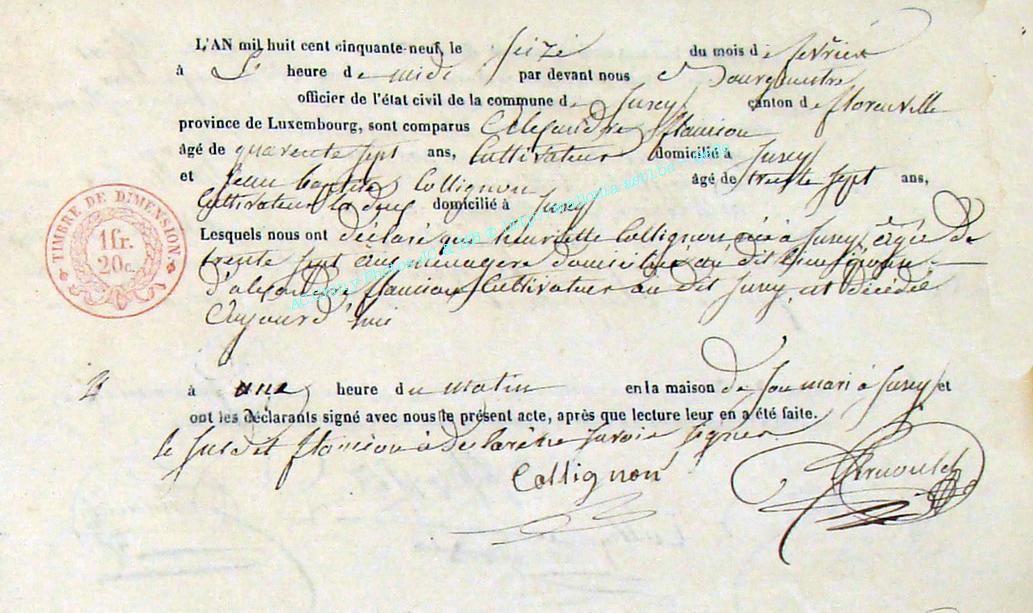 L'AN mil huit cent cinquante-neuf, le seize du mois de fevrier
à l' heure de midi par devant nous Bourgmestre
officier de l'état civil de la commune de Jusey canton de florenville
province de Luxembourg, sont comparus Alexandre
âgé de quarente sept ans, Cultivateur domicilié à Jusey
et Jean baptiste Collignon âgé de trente sept ans,
Cultivateur domicilié à Jusey
Lesquels nous ont déclaré que henriette Collignon née à Jusey âgée de
trente sept ans menagere domiciliée au dit Jusey
d'alexandre Cultivateur au dit Jusey, est décédée
aujourd'hui
à une heure du matin en la maison de son mari à Jusey et
ont les déclarants signé avec nous le présent acte, après que lecture leur en a été faite.
le susdit à declaré ne savoir signer
Collignon
TIMBRE DE DIMENSION
1 fr.
20 c.